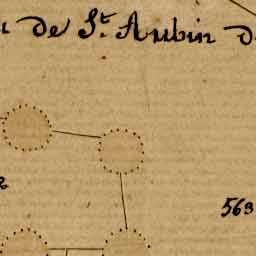 de St. Aubin
563